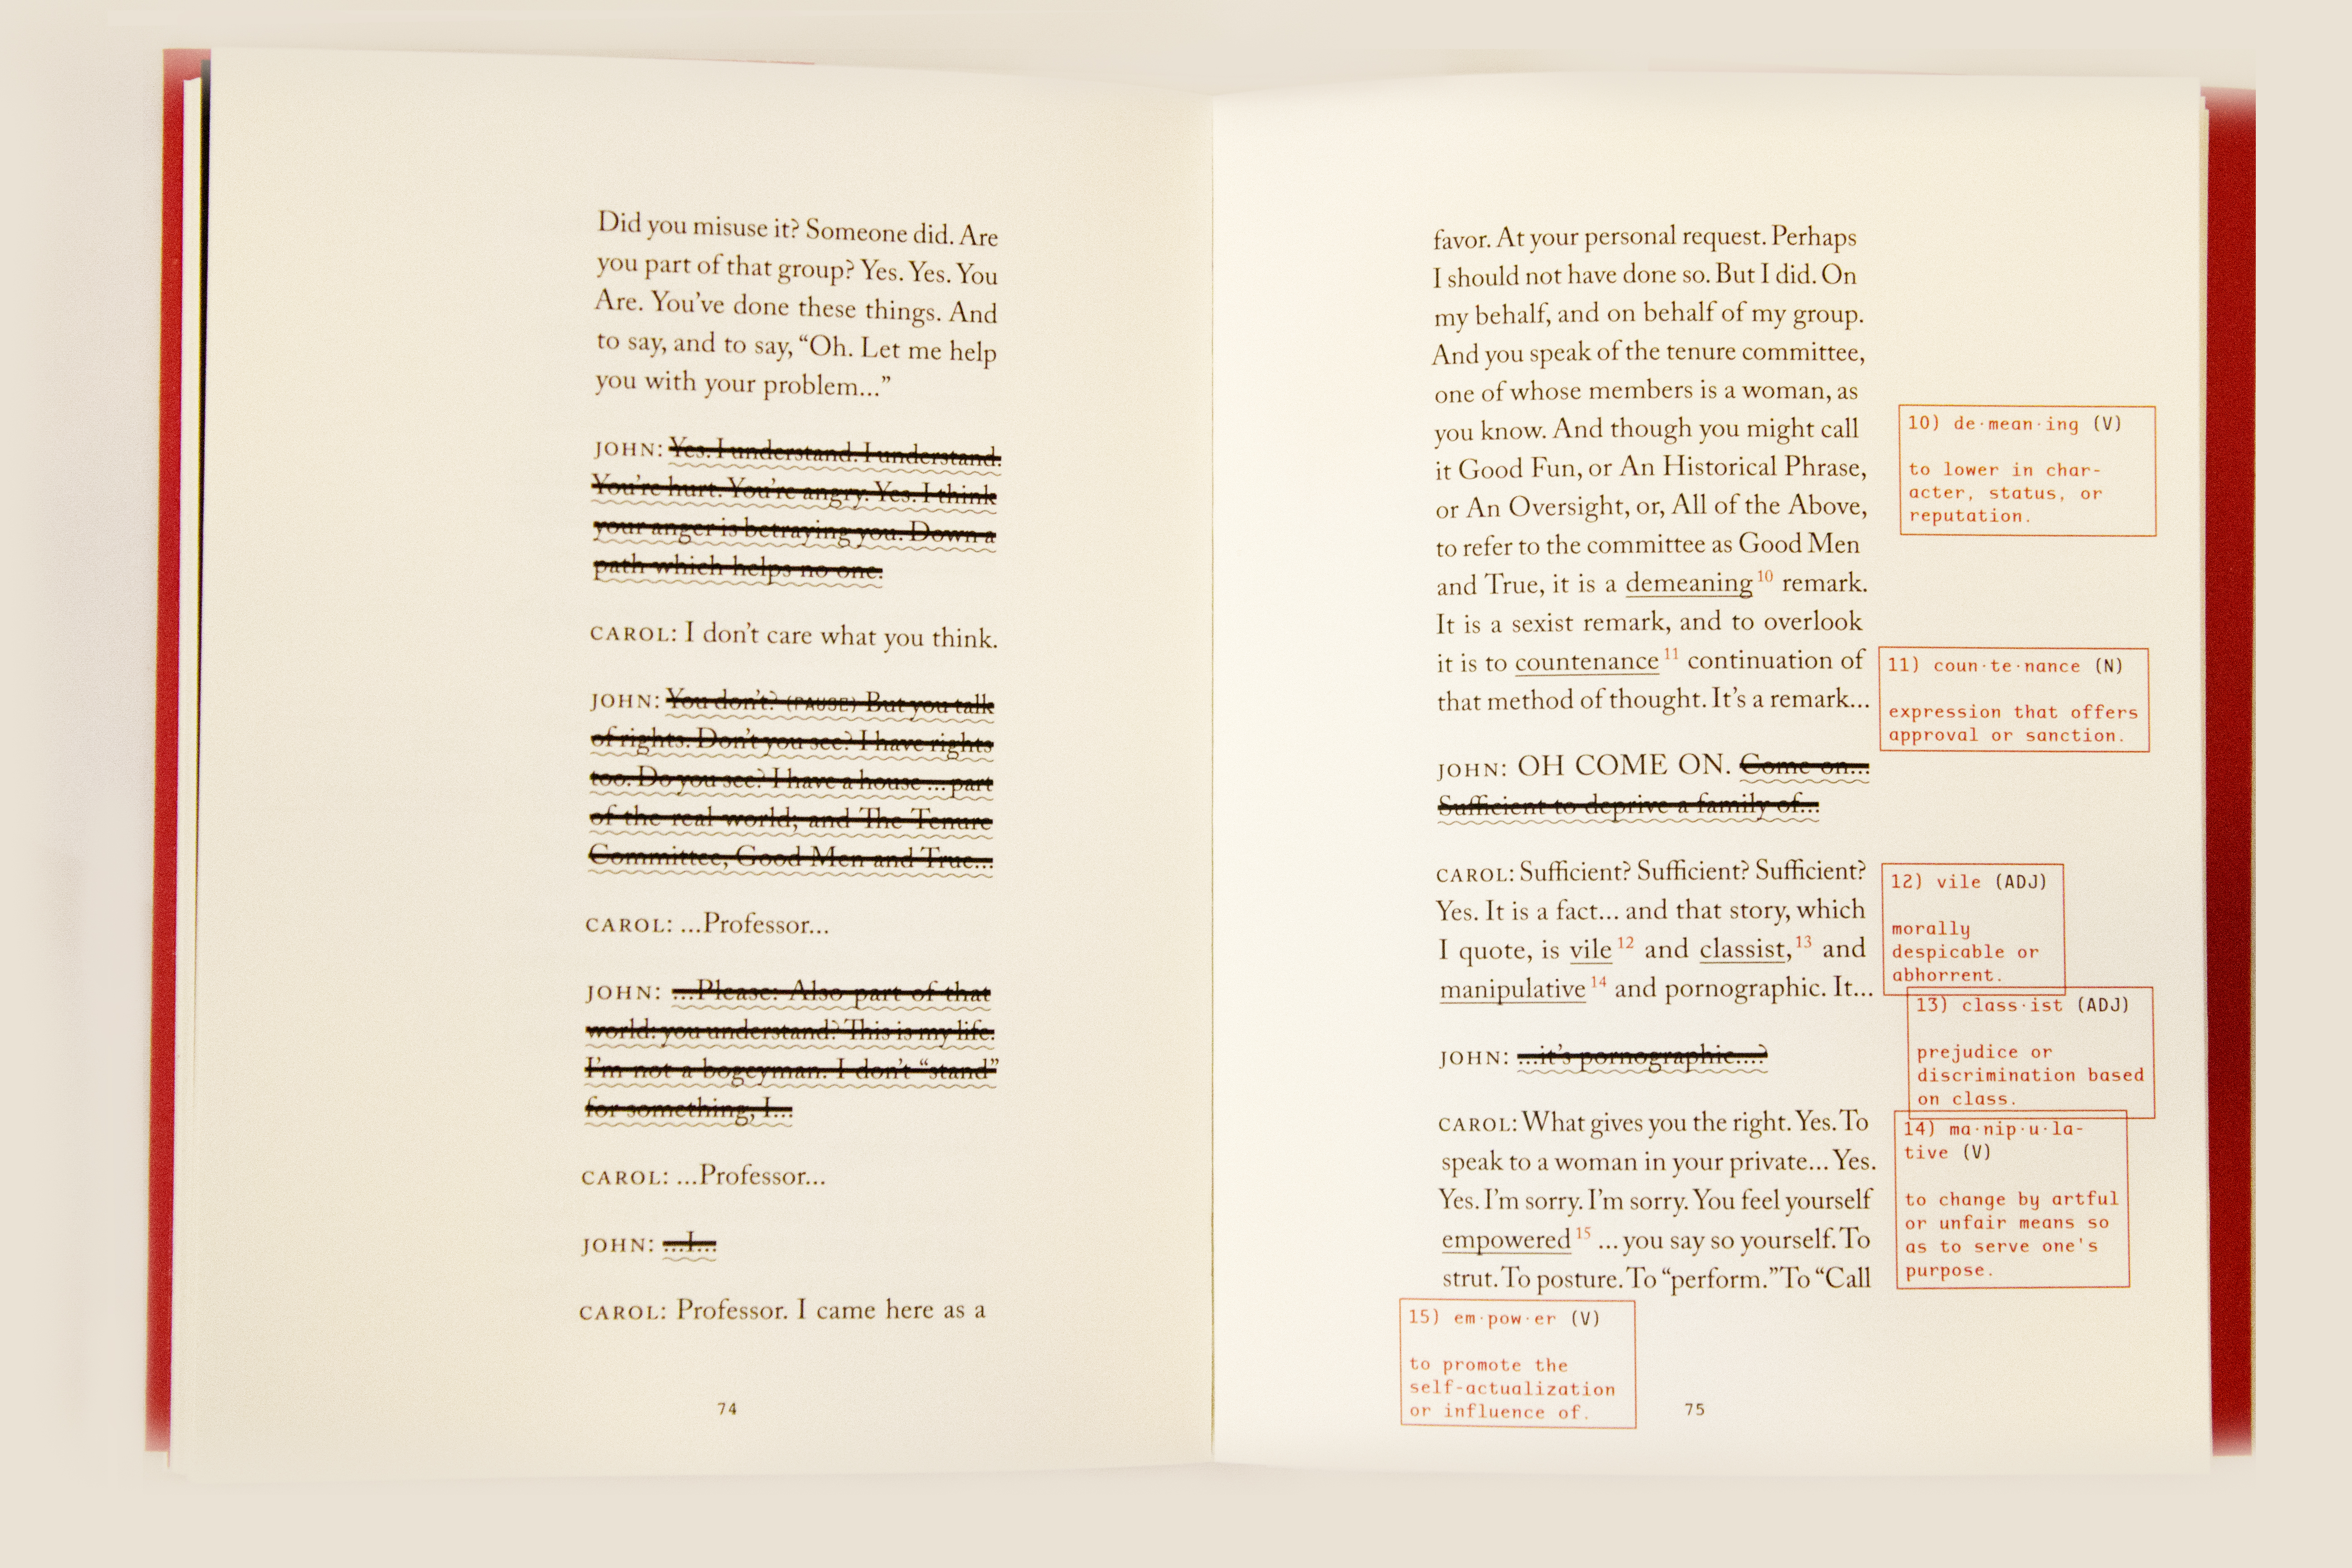 Did you misuse it? Someone did. Are
you part of that group? Yes. Yes. You
Are. You’ve done these things. And
to say, and to say, “Oh. Let me help
you with your problem...”
JOHN: Yes. I understand. I understand.
You’re hurt. You’re angry. Yes. I think
your anger is betraying you. Down a
path which helps no one.
CAROL: I don’t care what you think.
JOHN: You don’t? (PAUSE) But you talk
of rights. Don’t you see? I have rights
too. Do you see? I have a house ... part
of the real world; and The Tenure
Committee, Good Men and True...
CAROL: ...Professor...
JOHN: ...Please: Also part of that
world: you understand? This is my life.
I’m not a bogeyman. I don’t “stand”
for something, I...
CAROL: ...Professor...
JOHN: ...I...
CAROL: Professor. I came here as a
74
favor. At your personal request. Perhaps
I should not have done so. But I did. On
my behalf, and on behalf of my group.
And you speak of the tenure committee,
one of whose members is a woman, as
you know. And though you might call
it Good Fun, or An Historical Phrase,
or An Oversight, or, All of the Above,
to refer to the committee as Good Men
and True, it is a demeaning 10 remark.
It is a sexist remark, and to overlook
it is to countenance 11 continuation of
that method of thought. It’s a remark...
JOHN: OH COME ON. Come on...
Sufficient to deprive a family of...
CAROL: Sufficient? Sufficient? Sufficient?
Yes. It is a fact... and that story, which
I quote, is vile 12 and classist, 13 and
manipulative 14 and pornographic. It...
JOHN: ...it’s pornographic....?
CAROL: What gives you the right. Yes. To
speak to a woman in your private... Yes.
Yes. I’m sorry. I’m sorry. You feel yourself
empowered 15 ... you say so yourself. To
strut. To posture. To “perform.” To “Call
10) de·mean·ing (V)
to lower in char-
acter, status, or
reputation.
11) coun·te·nance (N)
expression that offers
approval or sanction.
12) vile (ADJ)
morally
despicable or
abhorrent.
13) class·ist (ADJ)
prejudice or
discrimination based
on class.
14) ma·nip·u·la-
tive (V)
to change by artful
or unfair means so
as to serve one's
purpose.
15) em·pow·er (V)
to promote the
self-actualization
or influence of.
75